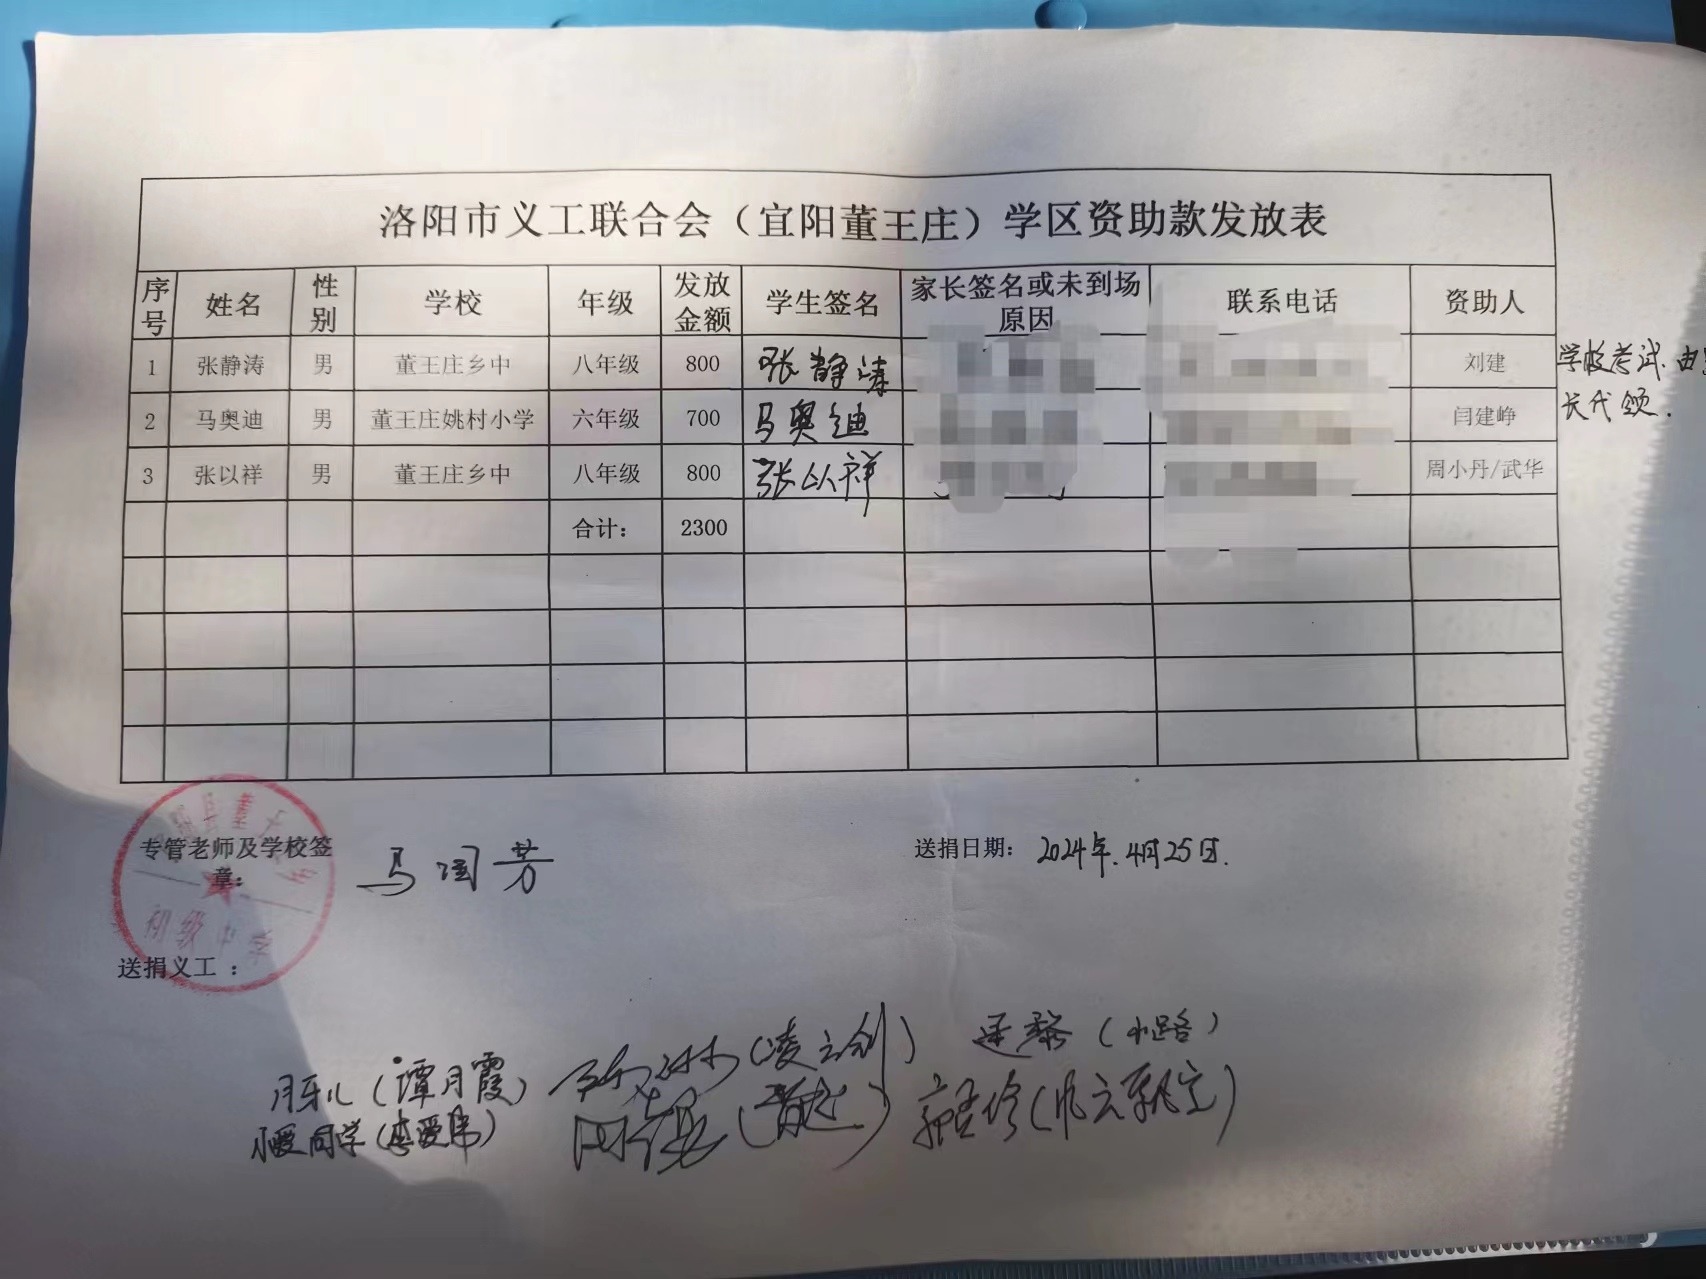 洛阳市义工联合会（宜阳董王庄）学区资助款发放表
序号 姓名 性别 学校 年级 发放金额 学生签名 家长签名或未到场原因 联系电话 资助人
1 张静涛 男 董王庄乡中 八年级 800 张静涛 刘建
2 马奥迪 男 董王庄姚村小学 六年级 700 马奥迪 闫建峥
3 张以祥 男 董王庄乡中 八年级 800 张以祥 周小丹/武华
合计： 2300
学校考试.由
长代领.
专管老师及学校签章： 马 芳
县董
初级中学
送捐日期： 2024年.4月25日.
送捐义工：
月牙儿（谭月霞） （凌云剑） （小路）
小爱同学